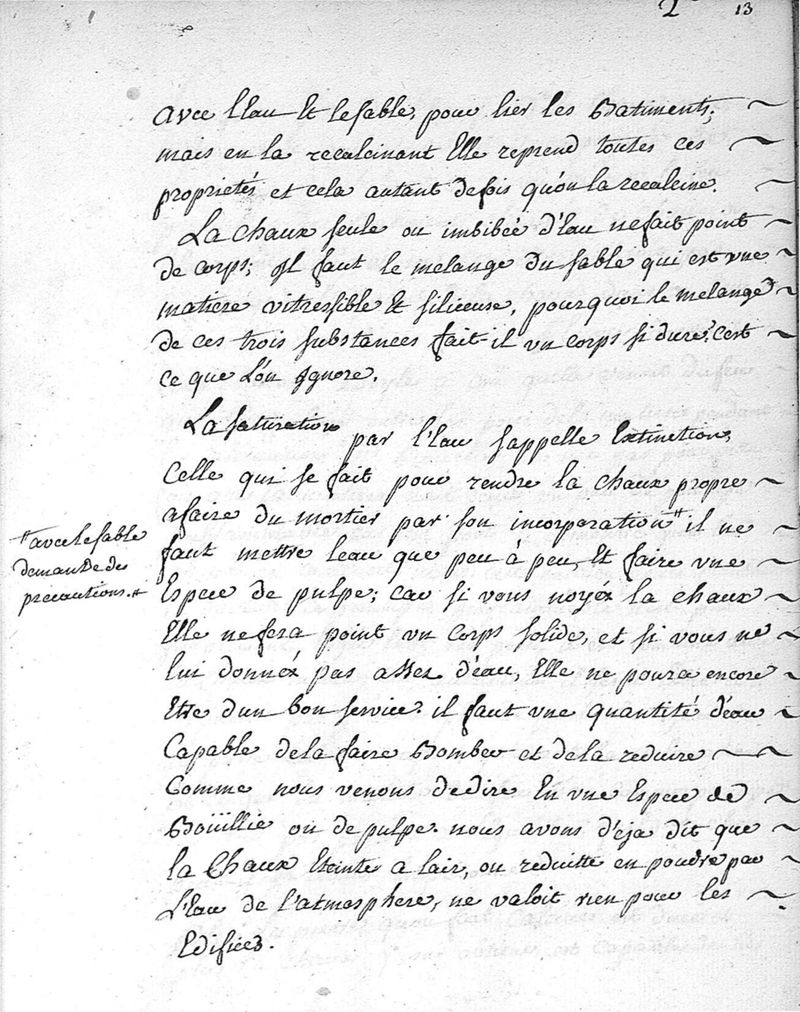 2 13
avec l'Eau Et le sable, pour lier les Batiments,
mais en la recalcinant Elle reprend toutes ces
proprietés et cela autant de fois qu'on la recalcine.
La chaux seule ou imbibée d'Eau ne fait point
de corps; Il faut le melange du sable qui est une
matiere vitressible Et siliceuse, pourquoi le melange
de ces trois substances fait-il un corps si dure, c'est
ce que L'on Ignore.
La saturation par l'Eau s'appelle Extinction,
Celle qui se fait pour rendre la chaux propre
a faire du mortier par son incorporation # il ne
# avec le sable
demande des
precautions. #
faut mettre leau que peu à peu, Et faire une
Espece de pulpe; car si vous noyéz la chaux
Elle ne fera point un Corps solide, et si vous ne
lui donnéz pas assez d'éau, Elle ne poura encore
Etre d'un bon service. il faut une quantité d'éau
Capable de la faire Bomber et de la reduire
Comme nous venons de dire En une Espece de
Boüillie ou de pulpe. nous avons d'éja dit que
la Chaux Eteinte a lair, ou reduitte en poudre par
L'Eau de l'atmosphere, ne valoit rien pour les
Edifices.